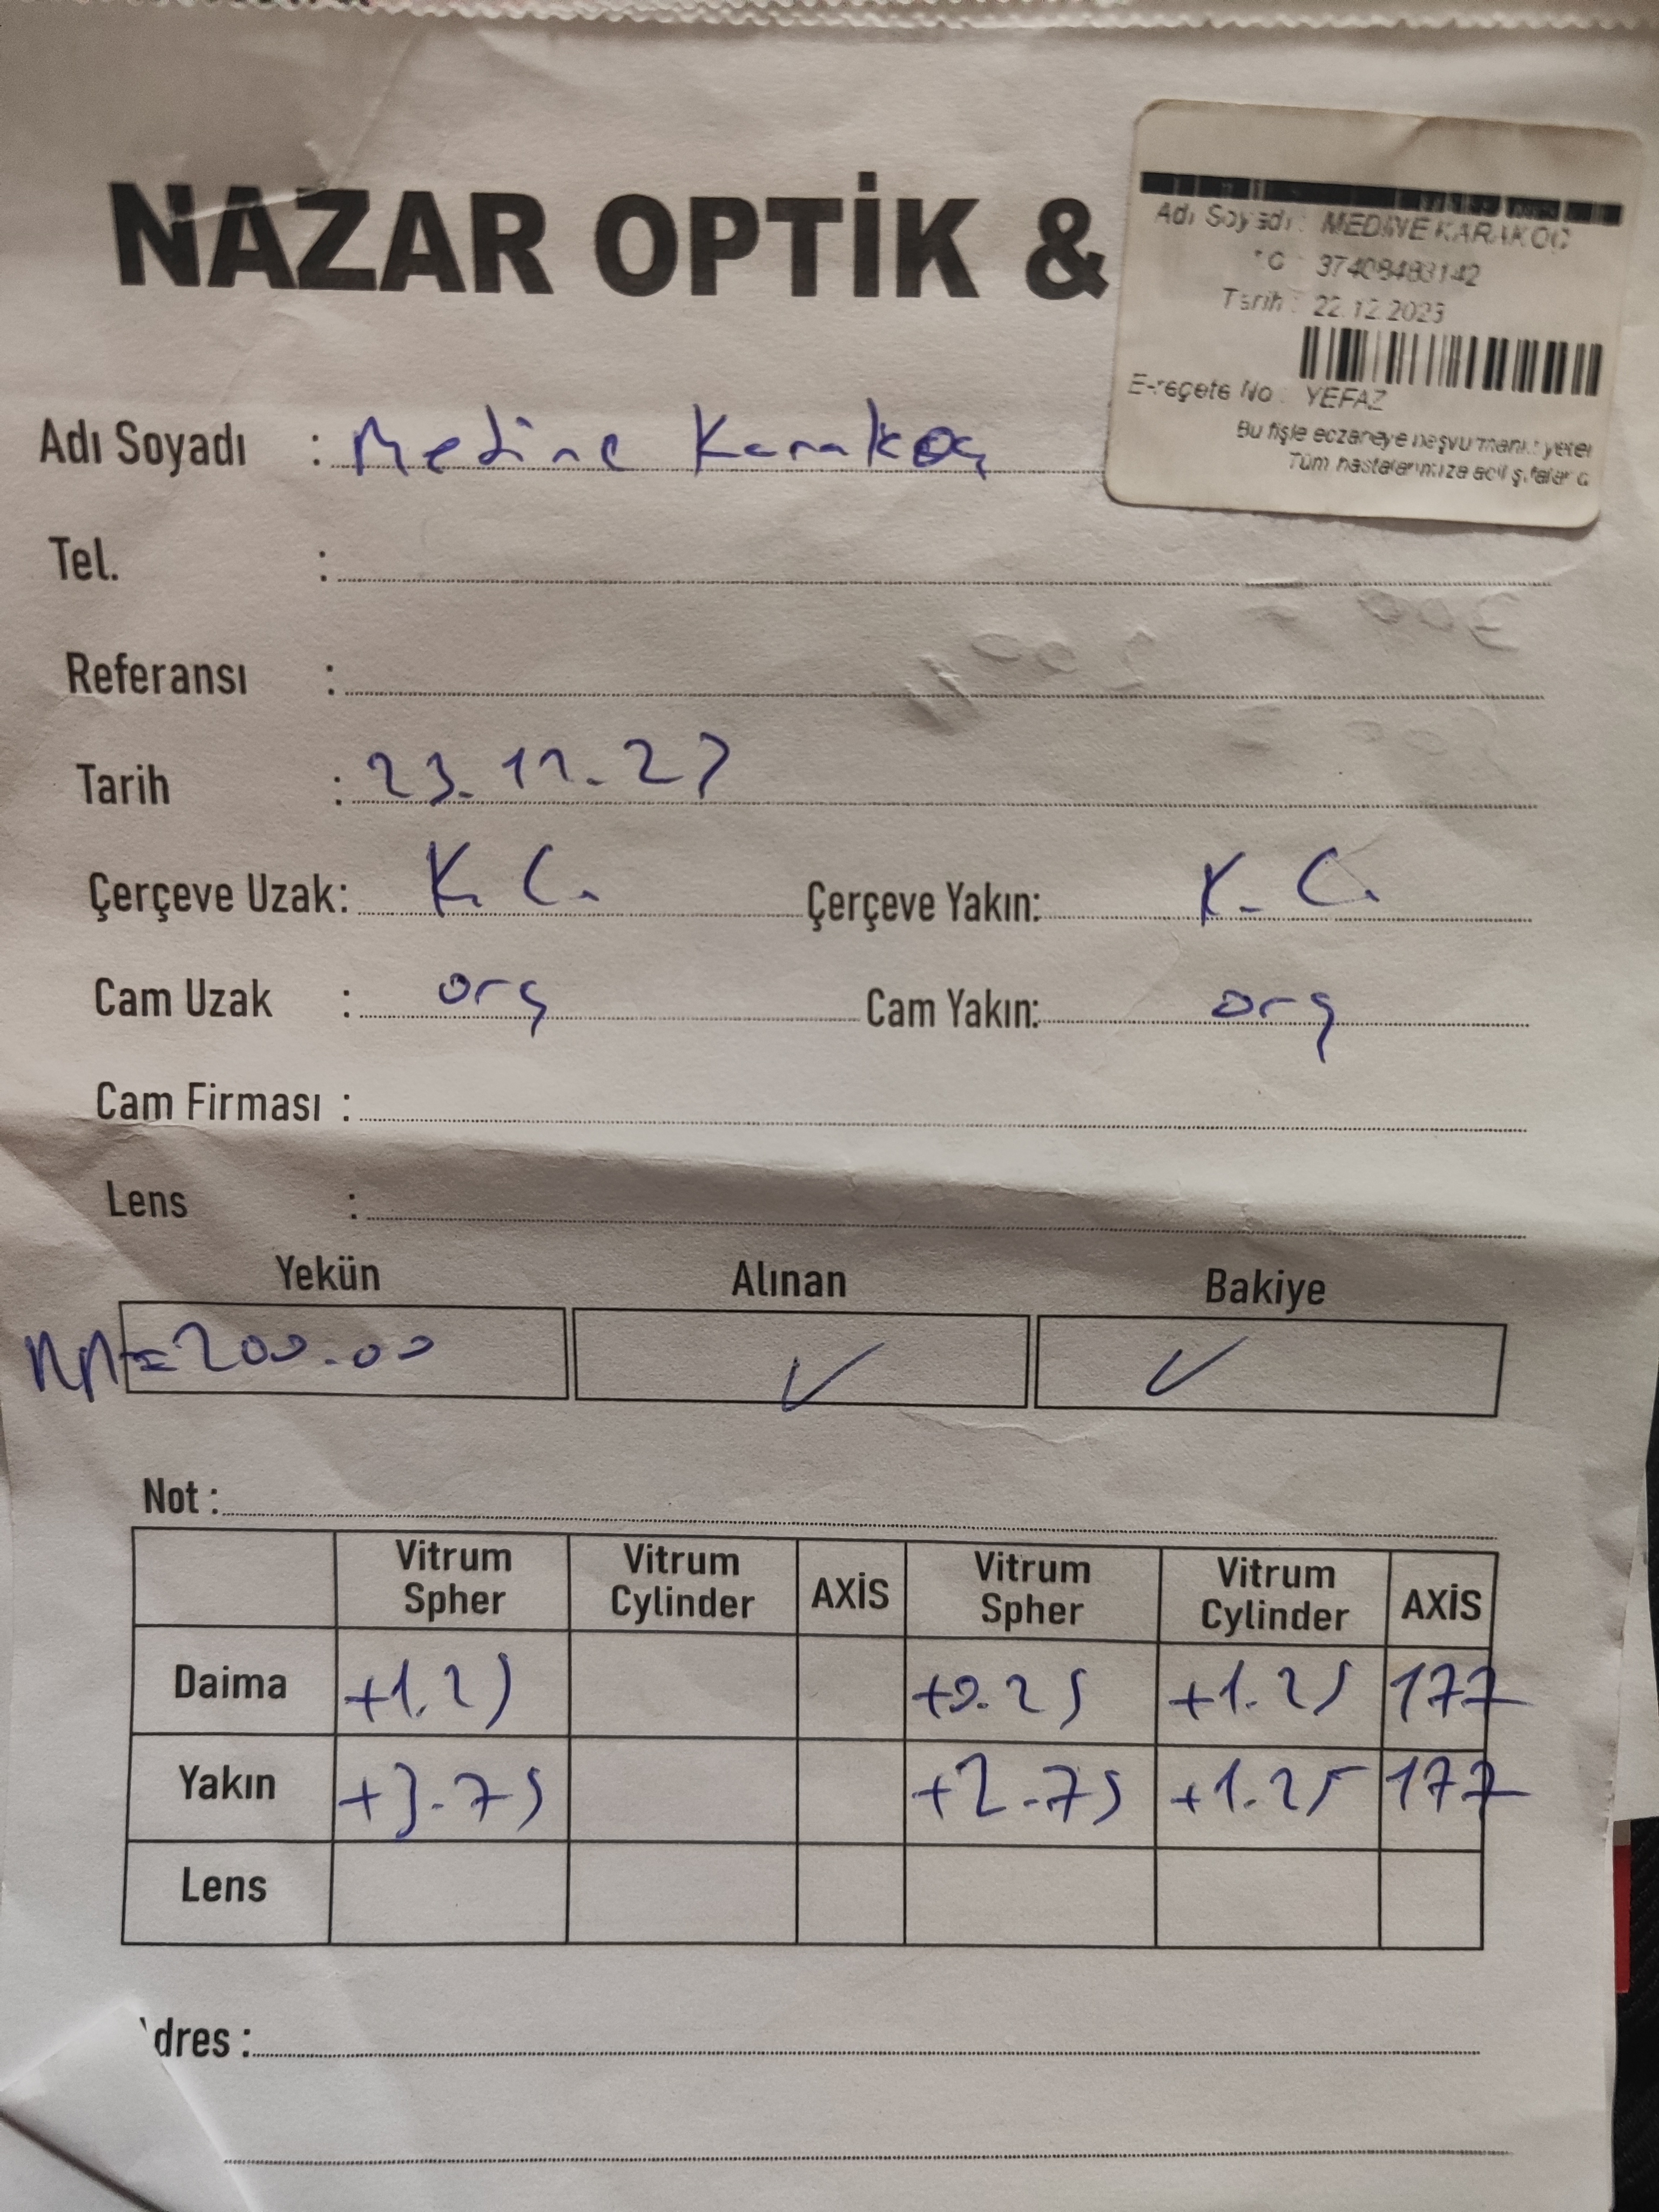 NAZAR OPTİK &
Adı Soyadı : MEDİNE KARAKOÇ
TC : 37408483142
Tarih : 22.12.2023
E-reçete No : YEFAZ
Bu fişle eczaneye başvurmanız yeter
Tüm hastalarımıza acil şifalar d
Adı Soyadı : Medine Karakoç
Tel. :
Referansı :
Tarih : 23.12.23
Çerçeve Uzak: K.C. Çerçeve Yakın: K.C.
Cam Uzak : org Cam Yakın: org
Cam Firması :
Lens :
Yekün Alınan Bakiye
=200.00 ✓ ✓
Not :
Vitrum Spher Vitrum Cylinder AXİS Vitrum Spher Vitrum Cylinder AXİS
Daima +1.25 +0.25 +1.25 177
Yakın +3.75 +2.75 +1.25 177
Lens
dres :